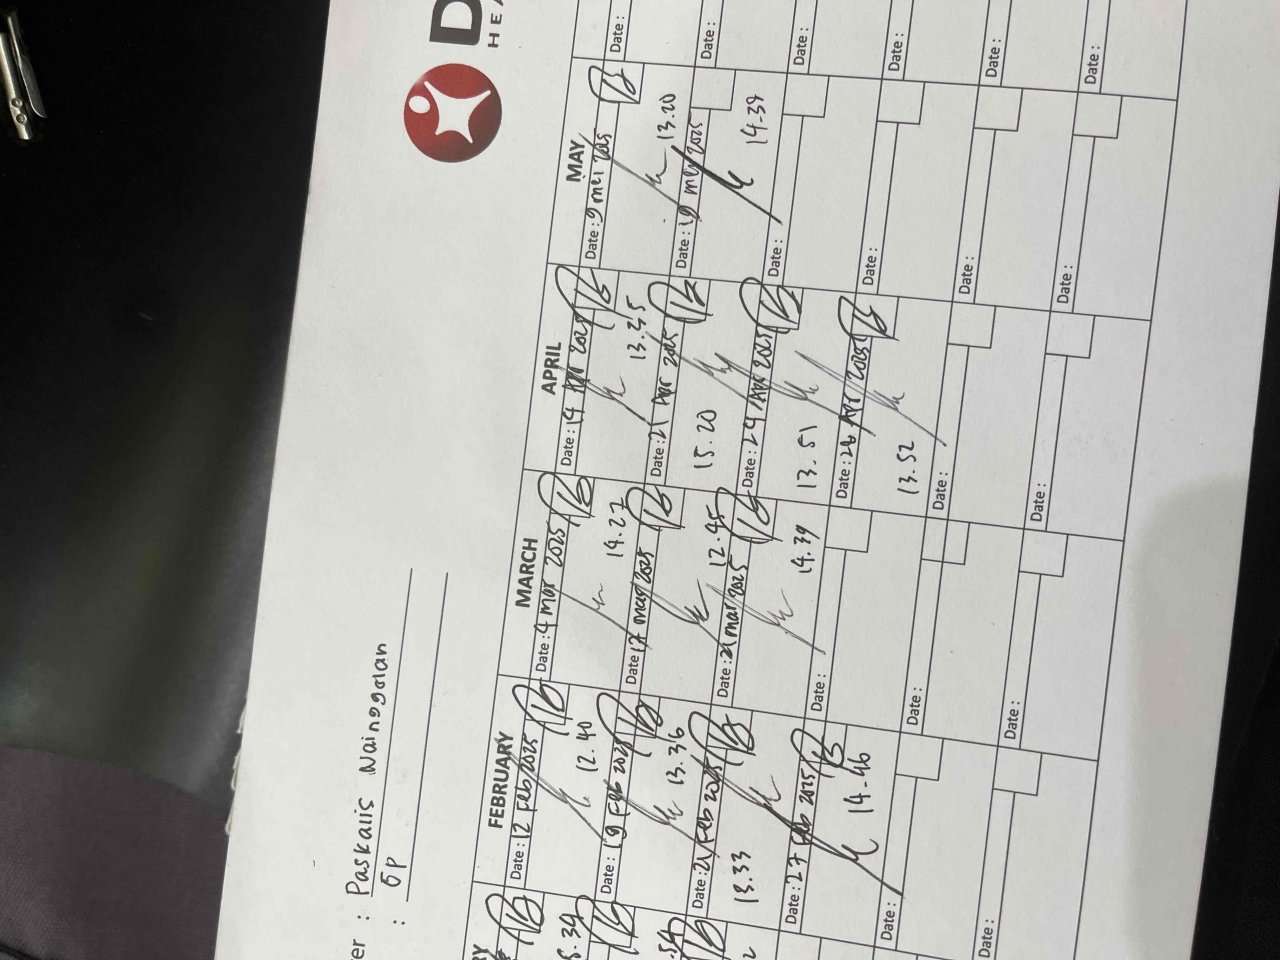 D
HEA
er : Paskalis Nainggolan
: GP
FEBRUARY
MARCH
APRIL
MAY
Date: 12 Feb 2025
12.40
Date: 19 Feb 2025
13.36
Date: 21 Feb 2025
13.33
Date: 27 Feb 2025
14.46
Date:
Date:
Date: 4 mar 2025
14.27
Date: 17 mar 2025
12.45
Date: 21 mar 2025
14.39
Date:
Date:
Date:
Date: 14 Apr 2025
13.35
Date: 21 Apr 2025
15.20
Date: 24 Apr 2025
13.51
Date: 26 Apr 2025
13.52
Date:
Date:
Date: 9 mei 2025
13.20
Date: 19 mei 2025
14.39
Date:
Date:
Date:
Date:
Date:
Date:
Date:
Date:
Date:
Date: